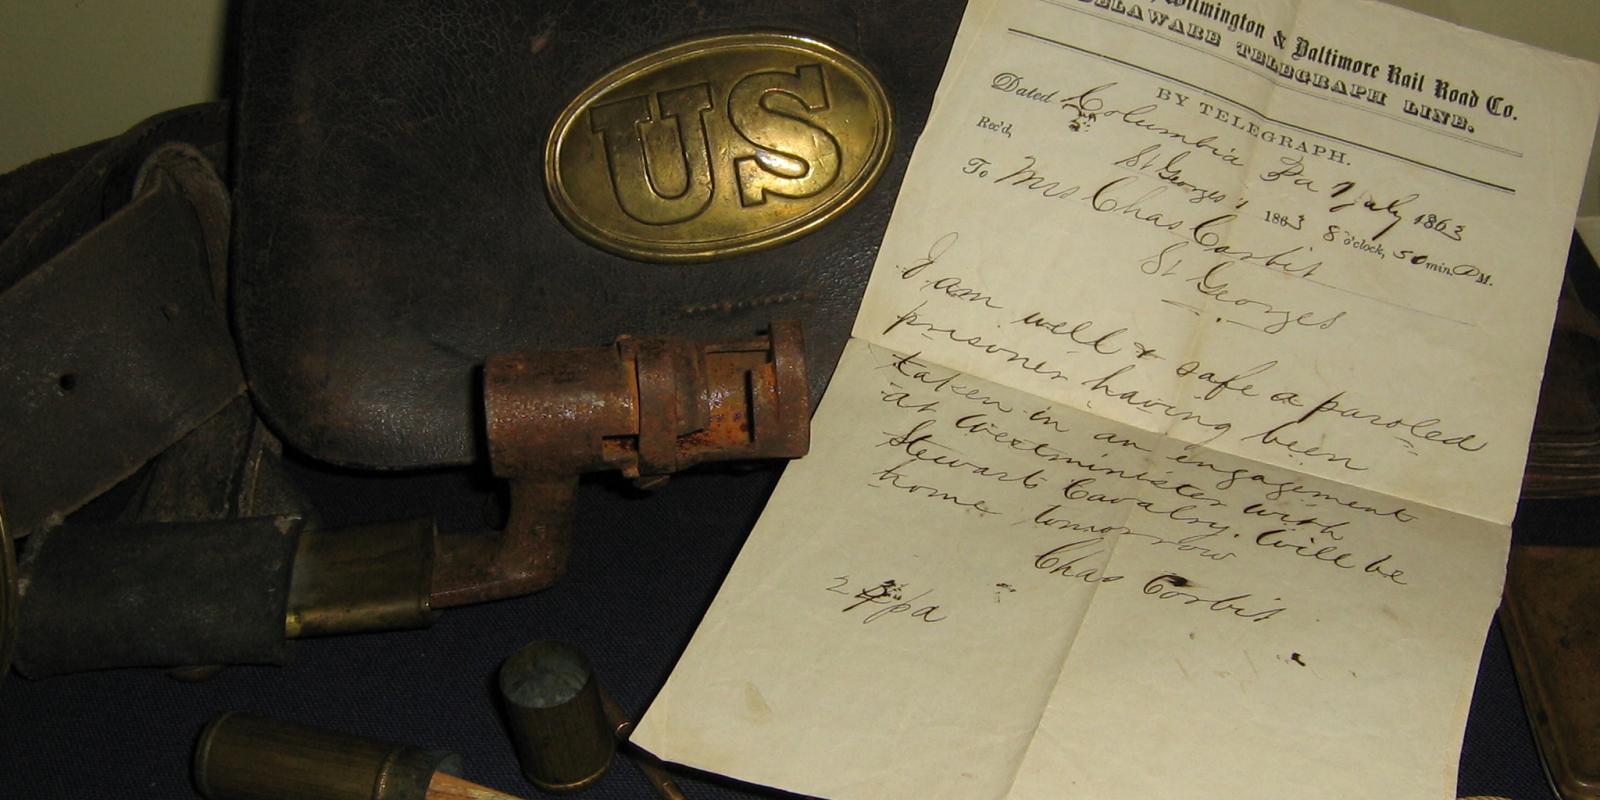 US
Wilmington & Baltimore Rail Road Co.
DELAWARE TELEGRAPH LINE.
BY TELEGRAPH.
Dated Columbia Pa 7 July 1863
Rec'd, St Georges, 1863 8 o'clock, 50 min. P M.
To Mrs Chas Corbit
St Georges
I am well & safe a paroled
prisoner having been
taken in an engagement
at Westminister with
Stewarts Cavalry. Will be
home tomorrow
Chas Corbit
pa